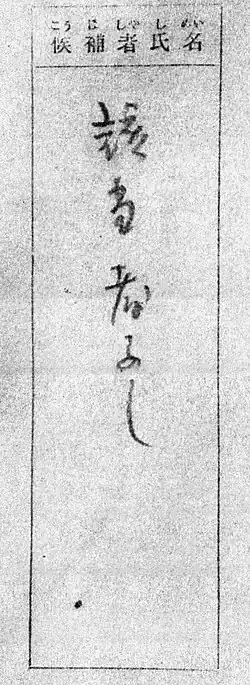 こうほしゃしめい
候補者氏名
該当者なし